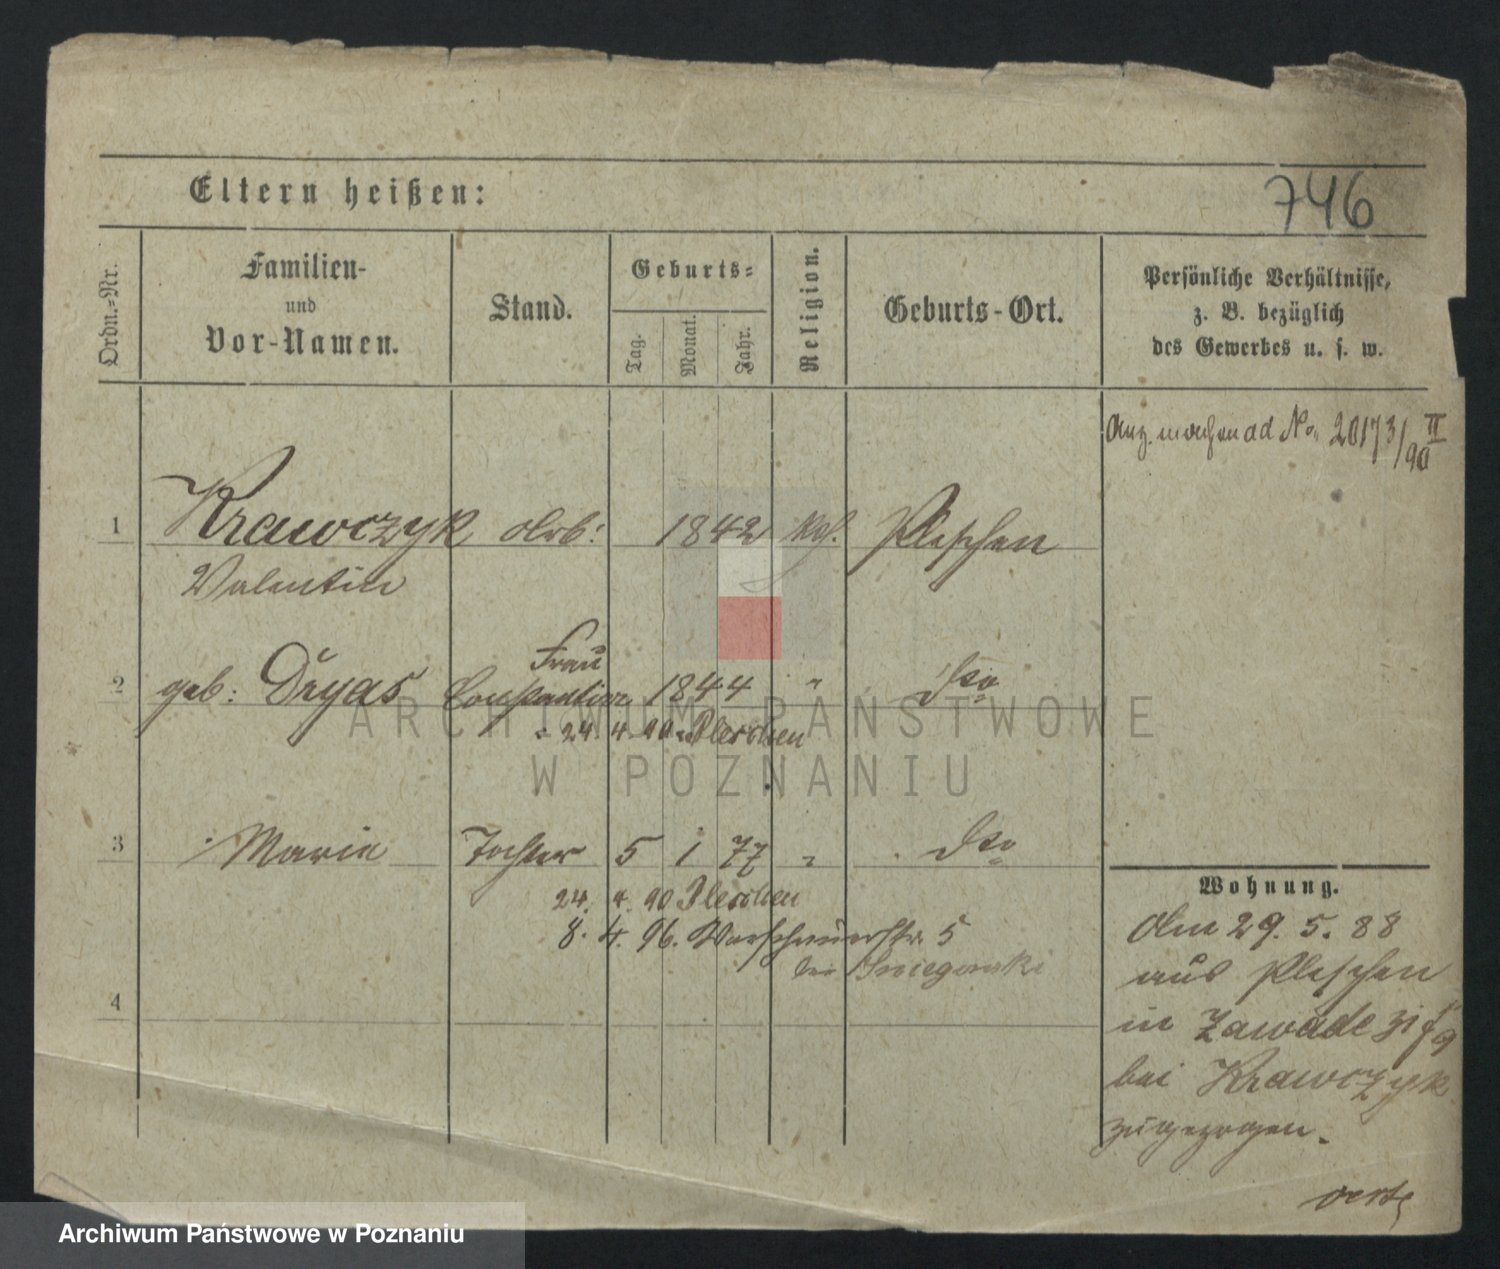 Eltern heißen:
746
Ordn.-Nr.
Familien-
und
Vor-Namen.
Stand.
Geburts-
Tag.
Monat.
Jahr.
Religion.
Geburts-Ort.
Persönliche Verhältnisse,
z. B. bezüglich
des Gewerbes u. s. w.
ad No. 20173/90 II
1 Krawczyk Arb: 1842 kth. Pleschen
Valentin
Frau
2 geb: Dryas Constantine 1844 " dto
24. 4. 90 Pleschen
3 Marie Tochter 5 1 77 " dto
24. 4. 90 Pleschen
8. 4. 96. Warschauerstr. 5
bei
4
Wohnung.
Am 29. 5. 88
aus Pleschen
in Zawade
bei Krawczyk
zugezogen.
ARCHIWUM PAŃSTWOWE
W POZNANIU
Archiwum Państwowe w Poznaniu